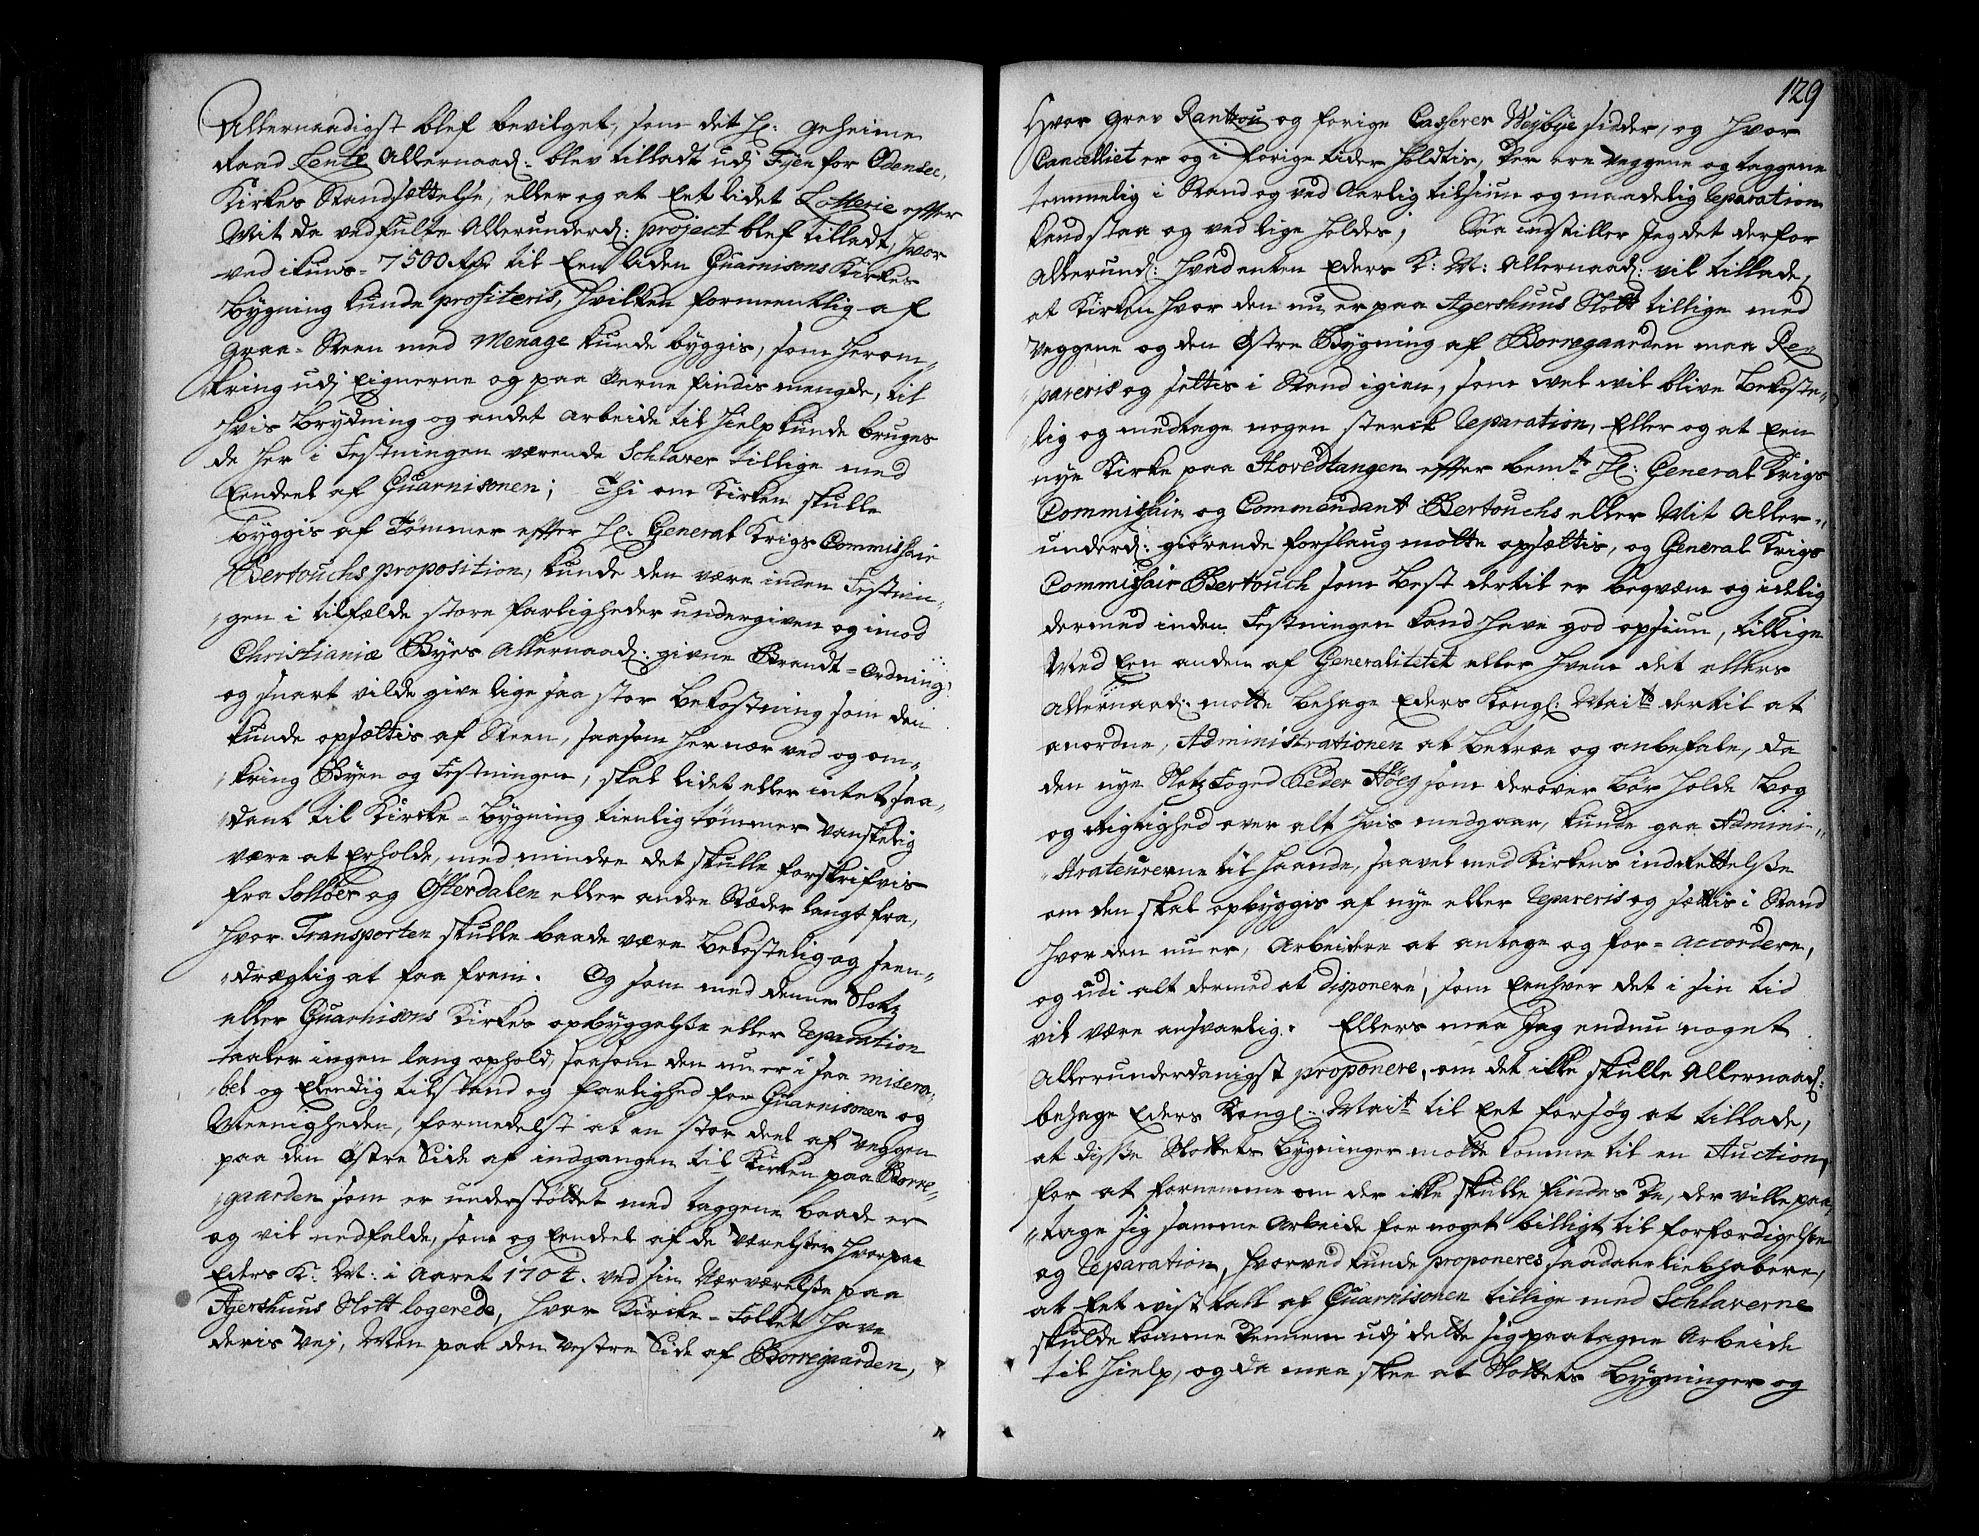 Allernaadigst blef bevilget, som det H: geheime
Raad Lente Allernaad: blev tilladt udj Fyen for Odensee
Kirkes Standsættelse, eller og at Eet lidet Lotterie effter
Mit da vedfulte Allerunderd: project blef tilladt, hvor
ved ikuns 7500 Rdr til Een liden Guarnisons Kirkes
bygning kunde profiteris, hvilken formeentlig af
Graa-Steen med Menage kunde byggis, som herom-
kring udj Eignerne og paa Øerne findis mengde, til
hvis brydning og andet arbeide til hielp kunde bruges
de her i Festningen værende Schlaver tillige med
Eendeel af Guarnisonen; Thi om Kirken skulle
byggis af Tømmer effter H: General Krigs Commissair
Bertouchs proposition, kunde den være inden Festnin-
gen i tilfælde store farligheder undergiven og imod
Christianiæ Byes Allernaad: givne Brandt-Ordning:
og snart vilde give lige saa stor bekostning som den
kunde opsættis af Steen, saasom her nær ved og om-
kring Byen og Festningen, skal lidet eller intet saa-
dant til Kircke-bygning tienlig tømmer vanskelig
være at erholde, med mindre det skulle forskrifvis
fra Solløer og Østerdalen eller andre Stæder langt fra,
hvor Transporten skulle baade være bekostelig og seen-
drægtig at faa frem. Og som med denne Slotz
eller Guarnisons Kirkes opbyggelse eller Reparation
taaler ingen lang ophold, saasom den nu er i saa misera-
bel og Elendig tilstand og farlighed for Guarnisonen og
Meenigheden, formedelst at en stor deel af veggen
paa den østre Side af indgangen til Kirken paa Borre-
gaarden som er understøttet med taggene baade er
og vil nedfalde, som og Eendeel af de værelser hvorpaa
Eders K: M: i Aaret 1704. ved sin Nærværelse paa
Agershuus Slott logerede, hvor Kircke-Folket have
deris vej, Men paa den vestre Side af Borregaarden,
129
Hvor Grev Rantzou og forige Casserer Weybye sidder, og hvor
Cancelliet er og i forige tider holdtis, der ere veggene og taggene
temmelig i Stand og ved Aarlig tilsiun og maadelig Reparation
kand staa og ved lige holdes; Saa indstiller Jeg det derfor
Allerund: hvad enten Eders K: M: Allernaad: vil tillade,
at Kirken hvor den nu er paa Agershuus Slott tillige med
Veggene og den Østre Bygning af Borregaarden maa Re-
pareris og settis i Stand igien, som vel vil blive bekoste-
lig og medtage nogen sterck Reparation, Eller og at Een
nye Kirke paa Hovedtangen effter bemte H: General Krigs
Commissair og Commendant Bertouchs eller Mit Aller-
underd: giørende forslaug motte opsættis, og General Krigs
Commissair Bertouch som best dertil er beqvæm og idelig
dermed inden Festningen kand have god opsiun, tillige
Med Een anden af Generalitetet eller hvem det ellers
Allernaad: motte behage Eders Kongl: Maitt dertil at
anordne, Administrationen at betroe og anbefale, da
den nye Slotz Foged Peder Høeg som derover bør holde bog
og Rigtighed over alt hvis medgaar, kunde gaa Admini-
strateurerne til haande, saavel med Kirkens indrettelse
om den skal opbyggis af nye eller Repareris og sættis i Stand
hvor den nu er, Arbeidere at antage og for-accordere,
og udi alt dermed at disponere, som Eenhver det i sin tid
vil være ansvarlig. Ellers maa Jeg endnu noget
Allerunderdanigst proponere, om det ikke skulle Allernaad:
behage Eders Kongl: Maitt til Eet forsøg at tillade,
at disse Slottets bygninger motte komme til en Auction,
for at fornemme om der ikke skulle findes de, der ville paa
tage sig samme arbeide for noget billigt til forfærdigelse
og Reparation, hvorved kunde proponeres saadane liebhabere,
at Eet vist tall af Guarnisonen tillige med Schlaverne
skulde komme dennem udj dette sig paatagne Arbeide
til hielp, og da maa skee at Slottets bygninger og